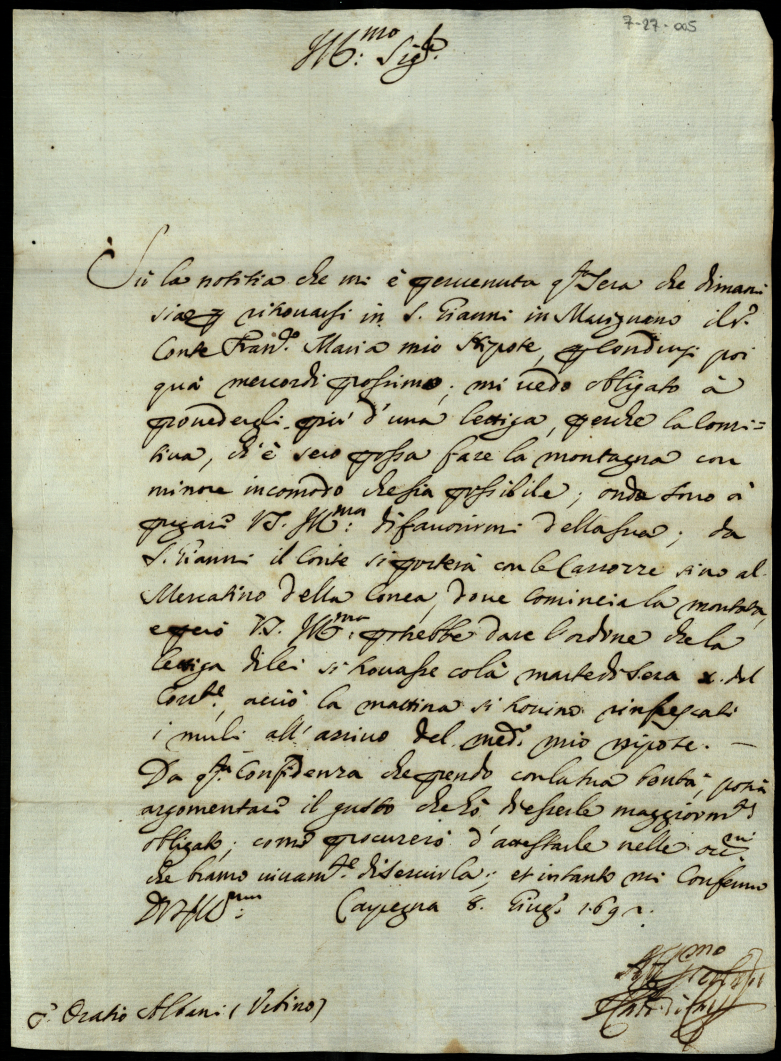 7-27-005
Ill:mo Sig.re
Su la notitia che mi è pervenuta q.ta sera che dimani
sia p ritrovarsi in S. Gianni in Marignano il S.r
Conte Fran.co Maria mio Nipote, p condursi poi
quà mercordi prossimo; mi vedo obligato à
provedergli più d'una lettiga, perche la comi=
tiva, ch'è seco possa fare la montagna con
minore incomodo che sia possibile; onde sono à
pregare V.S. Ill:ma di favorirmi della sua; da
S. Gianni il Conte si porterà con le Carozze sino al
Mercatino della Conca, dove comincia la montata,
e però V.S. Ill:ma potrebbe dare l'ordine che la
lettiga di lei si trovasse colà martedi sera x. del
Corr.te, acciò la mattina si trovino rinfrescati
i muli all'arrivo del med.o mio nipote. —
Da q.ta Confidenza che prendo con la sua bontà, potrà
argomentare il gusto che hò d'esserle maggiorm.te
obligato; come procurerò d'attestarle nelle occ.ni
che bramo vivam.te di servirla; et intanto mi Confermo
D V.S. Ill:ma Carpegna 8. Giug.o 1692.
S.r Oratio Albani (Urbino)